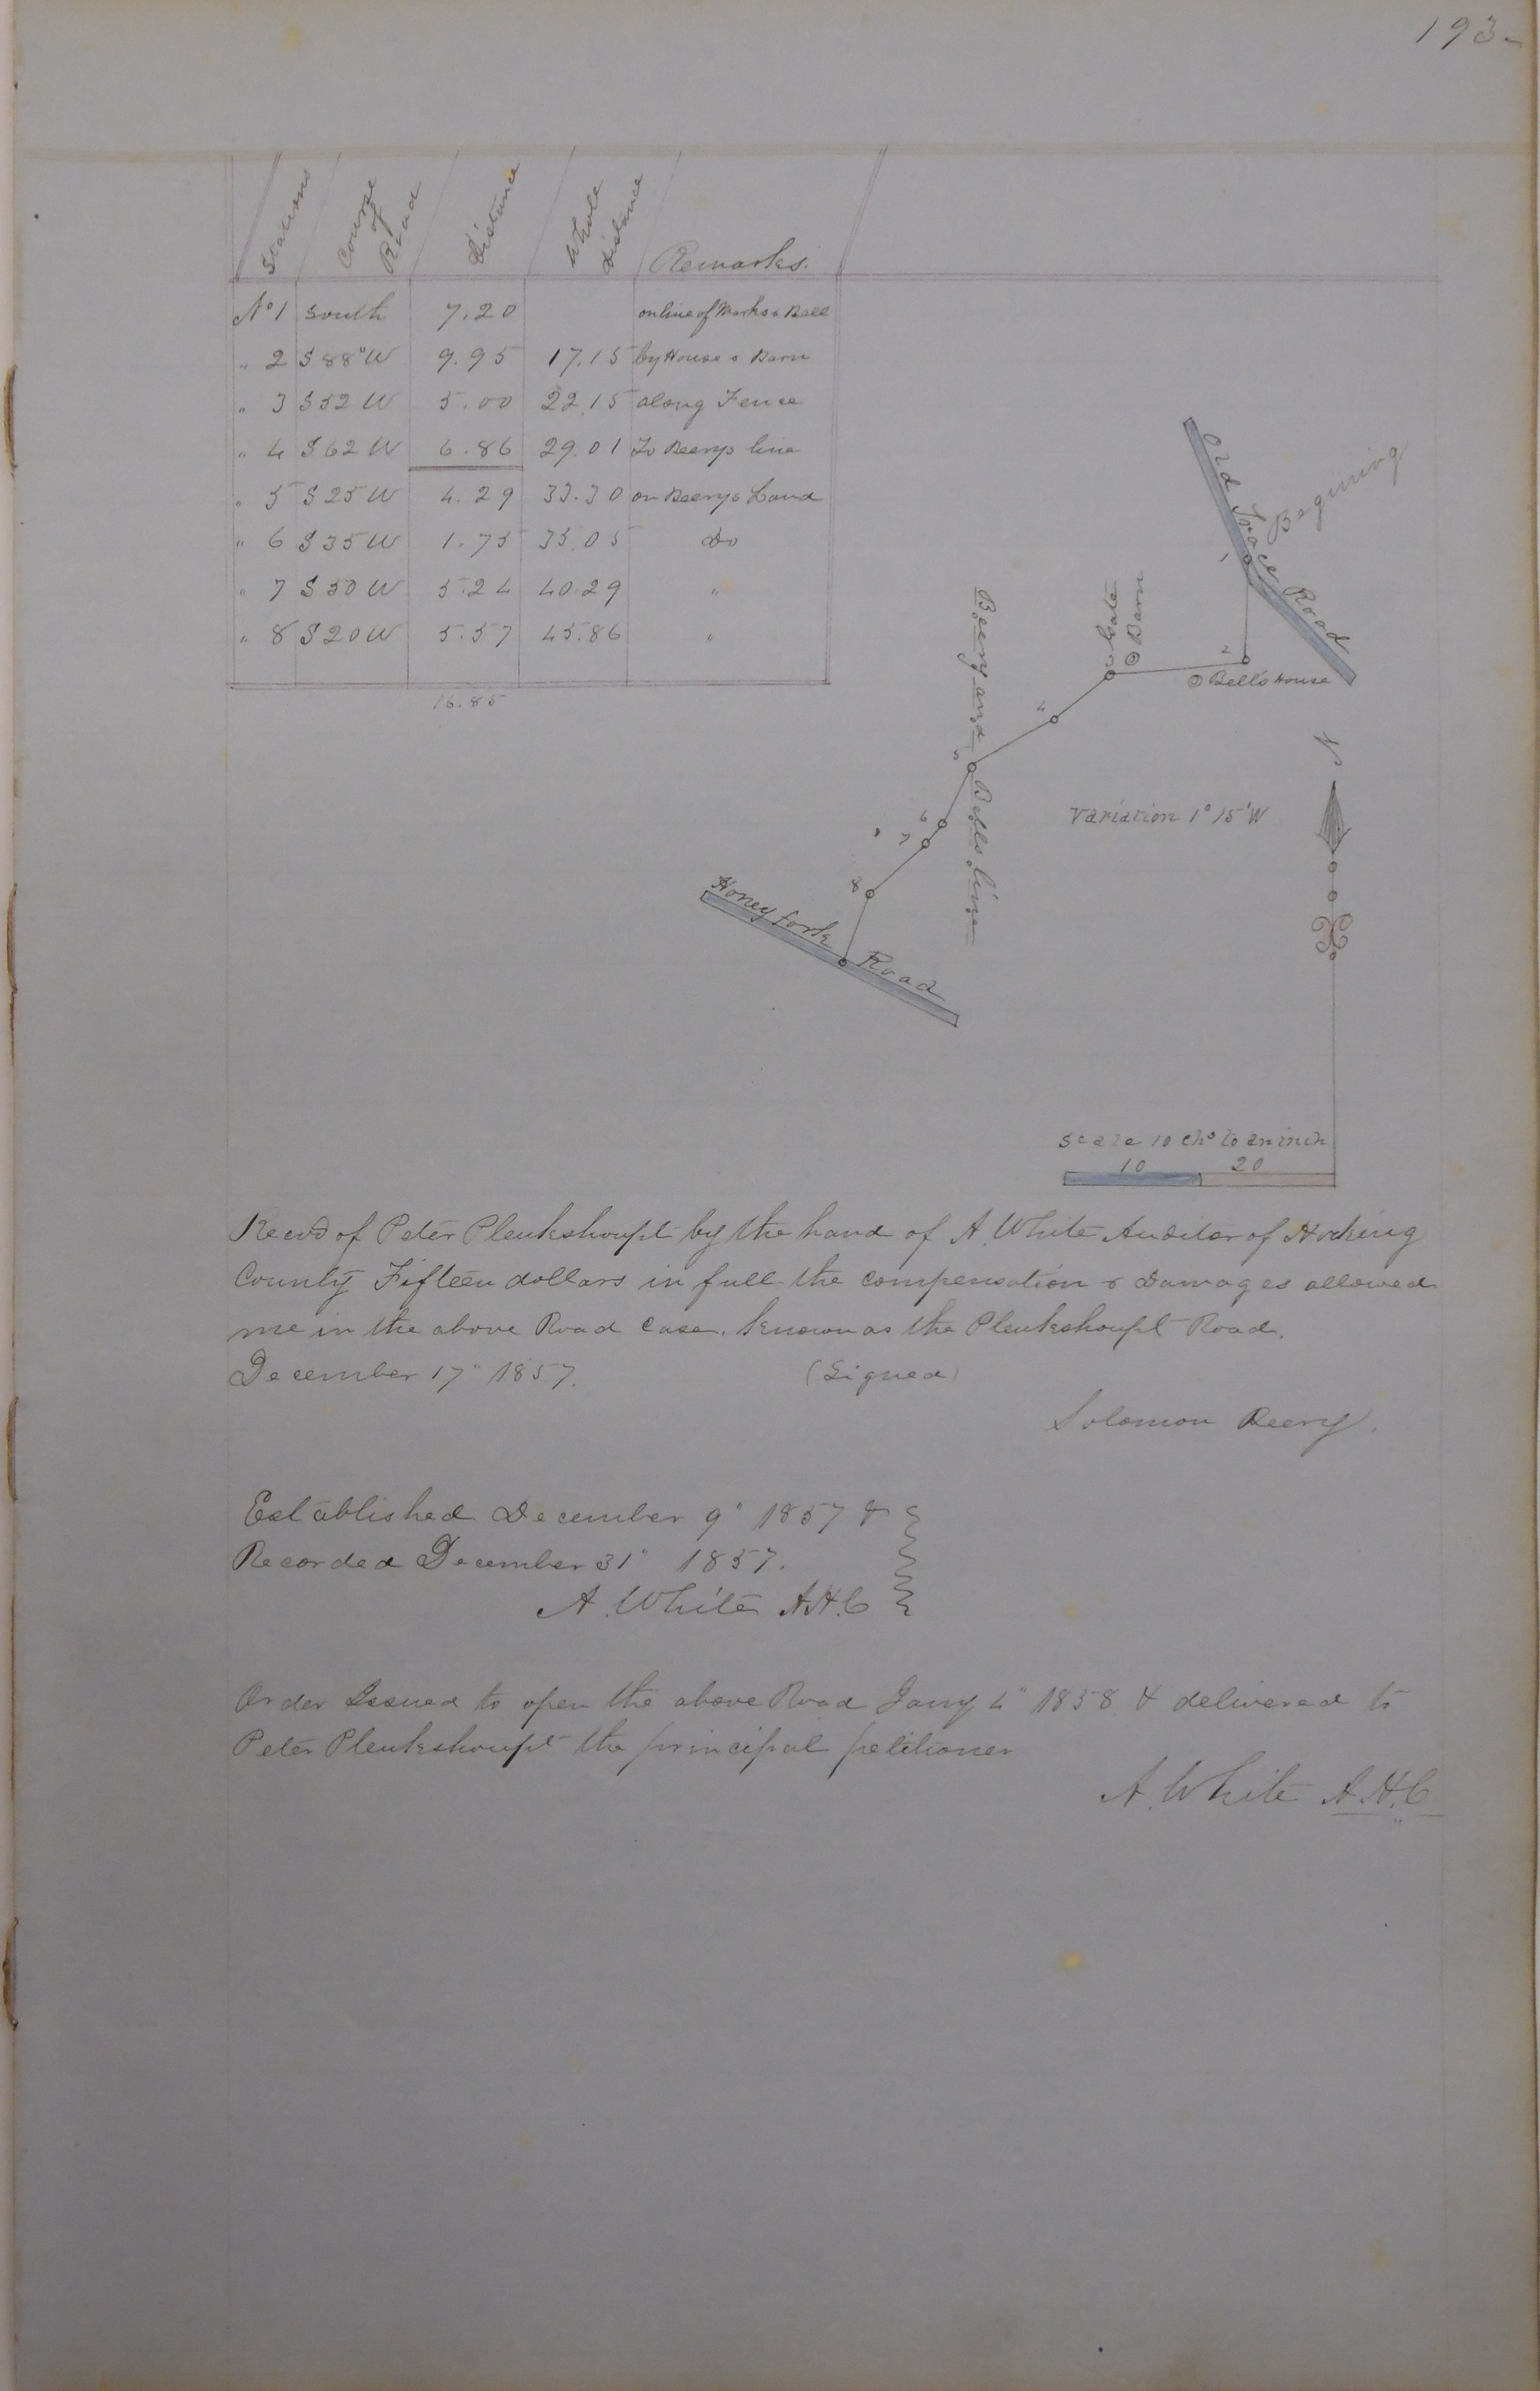 193-
Stations Course of Road Distance Whole Distance Remarks.
No 1 South 7.20 on line of Marks & Bell
" 2 S 88° W 9.95 17.15 by House & Barn
" 3 S 52 W 5.00 22.15 along Fence
" 4 S 62 W 6.86 29.01 To Beerys line
" 5 S 25 W 4.29 33.30 on Beerys Land
" 6 S 35 W 1.75 35.05 Do
" 7 S 50 W 5.24 40.29 "
" 8 S 20 W 5.57 45.86 "
16.85
Old Road
Begining
1
2
Bell's House
Gate
Barn
3
4
Beery and Bells line
5
6
7
8
Honey fork Road
N
Variation 1° 15' W
Scale 10 Chs to an inch
10 20
Recvd of Peter Pleukshoupt by the hand of A. White Auditor of Hocking
County Fifteen dollars in full the compensation & Damages allowed
me in the above Road case. known as the Pleukshoupt Road.
December 17" 1857. (Signed)
Solomon Beery.
Established December 9" 1857 &
Recorded December 31" 1857.
A. White A.H.C
Order Issued to open the above Road Jany 4" 1858 & delivered to
Peter Pleukshoupt the principal petitioner
A. White A.H.C